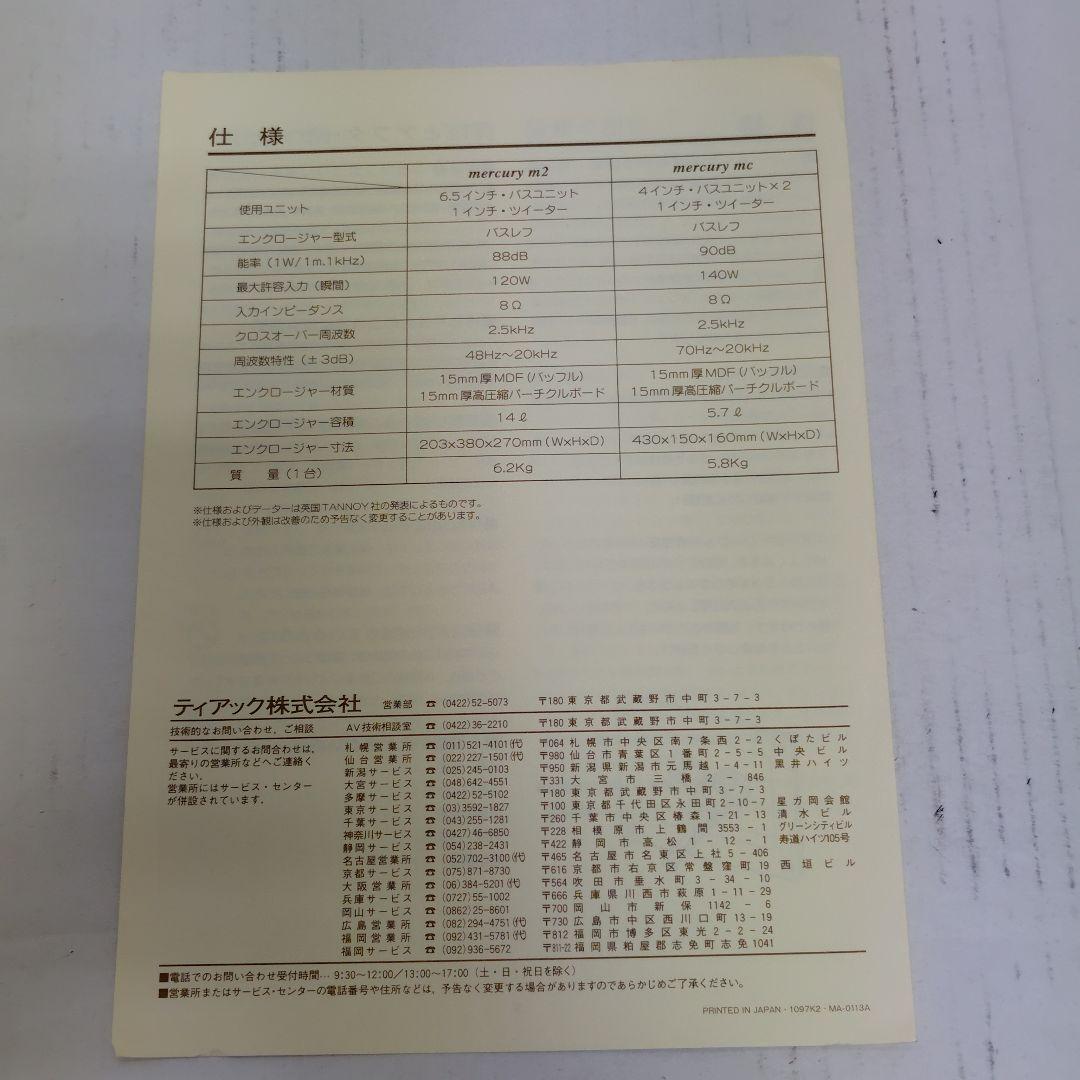 仕 様
mercury m2 mercury mc
使用ユニット 6.5インチ・バスユニット 4インチ・バスユニット×2
1インチ・ツイーター 1インチ・ツイーター
エンクロージャー型式 バスレフ バスレフ
能率（1W/1m.1kHz） 88dB 90dB
最大許容入力（瞬間） 120W 140W
入力インピーダンス 8Ω 8Ω
クロスオーバー周波数 2.5kHz 2.5kHz
周波数特性（±3dB） 48Hz～20kHz 70Hz～20kHz
エンクロージャー材質 15mm厚MDF（バッフル） 15mm厚MDF（バッフル）
15mm厚高圧縮パーチクルボード 15mm厚高圧縮パーチクルボード
エンクロージャー容積 14ℓ 5.7ℓ
エンクロージャー寸法 203x380x270mm（WxHxD） 430x150x160mm（WxHxD）
質 量（1台） 6.2Kg 5.8Kg
※仕様およびデーターは英国TANNOY社の発表によるものです。
※仕様および外観は改善のため予告なく変更することがあります。
ティアック株式会社 営業部 ☎（0422）52-5073 〒180 東京都武蔵野市中町3-7-3
技術的なお問い合わせ、ご相談 AV技術相談室 ☎（0422）36-2210 〒180 東京都武蔵野市中町3-7-3
サービスに関するお問合わせは、
最寄りの営業所などへご連絡く
ださい。
営業所にはサービス・センター
が併設されています。
札幌営業所 ☎（011）521-4101（代） 〒064 札幌市中央区南7条西2-2 くぼたビル
仙台営業所 ☎（022）227-1501（代） 〒980 仙台市青葉区1番町2-5-5 中央ビル
新潟サービス ☎（025）245-0103 〒950 新潟県新潟市元馬越1-4-11 黒井ハイツ
大宮サービス ☎（048）642-4551 〒331 大宮市三橋2-846
多摩サービス ☎（0422）52-5102 〒180 東京都武蔵野市中町3-7-3
東京サービス ☎（03）3592-1827 〒100 東京都千代田区永田町2-10-7 星ガ岡会館
千葉サービス ☎（043）255-1281 〒260 千葉市中央区椿森1-21-13 清水ビル
神奈川サービス ☎（0427）46-6850 〒228 相模原市上鶴間3553-1 グリーンシティビル
静岡サービス ☎（054）238-2431 〒422 静岡市高松1-12-1 寿道ハイツ105号
名古屋営業所 ☎（052）702-3100（代） 〒465 名古屋市名東区上社5-406
京都サービス ☎（075）871-8730 〒616 京都市右京区常盤窪町19 西垣ビル
大阪営業所 ☎（06）384-5201（代） 〒564 吹田市垂水町3-34-10
兵庫サービス ☎（0727）55-1002 〒666 兵庫県川西市萩原1-11-29
岡山サービス ☎（0862）25-8601 〒700 岡山市新保1142-6
広島営業所 ☎（082）294-4751（代） 〒730 広島市中区西川口町13-19
福岡営業所 ☎（092）431-5781（代） 〒812 福岡市博多区東光2-2-24
福岡サービス ☎（092）936-5672 〒811-22 福岡県粕屋郡志免町志免1041
■電話でのお問い合わせ受付時間…9:30～12:00／13:00～17:00（土・日・祝日を除く）
■営業所またはサービス・センターの電話番号や住所などは、予告なく変更する場合がありますのであらかじめご了承ください。
PRINTED IN JAPAN・1097K2・MA-0113A